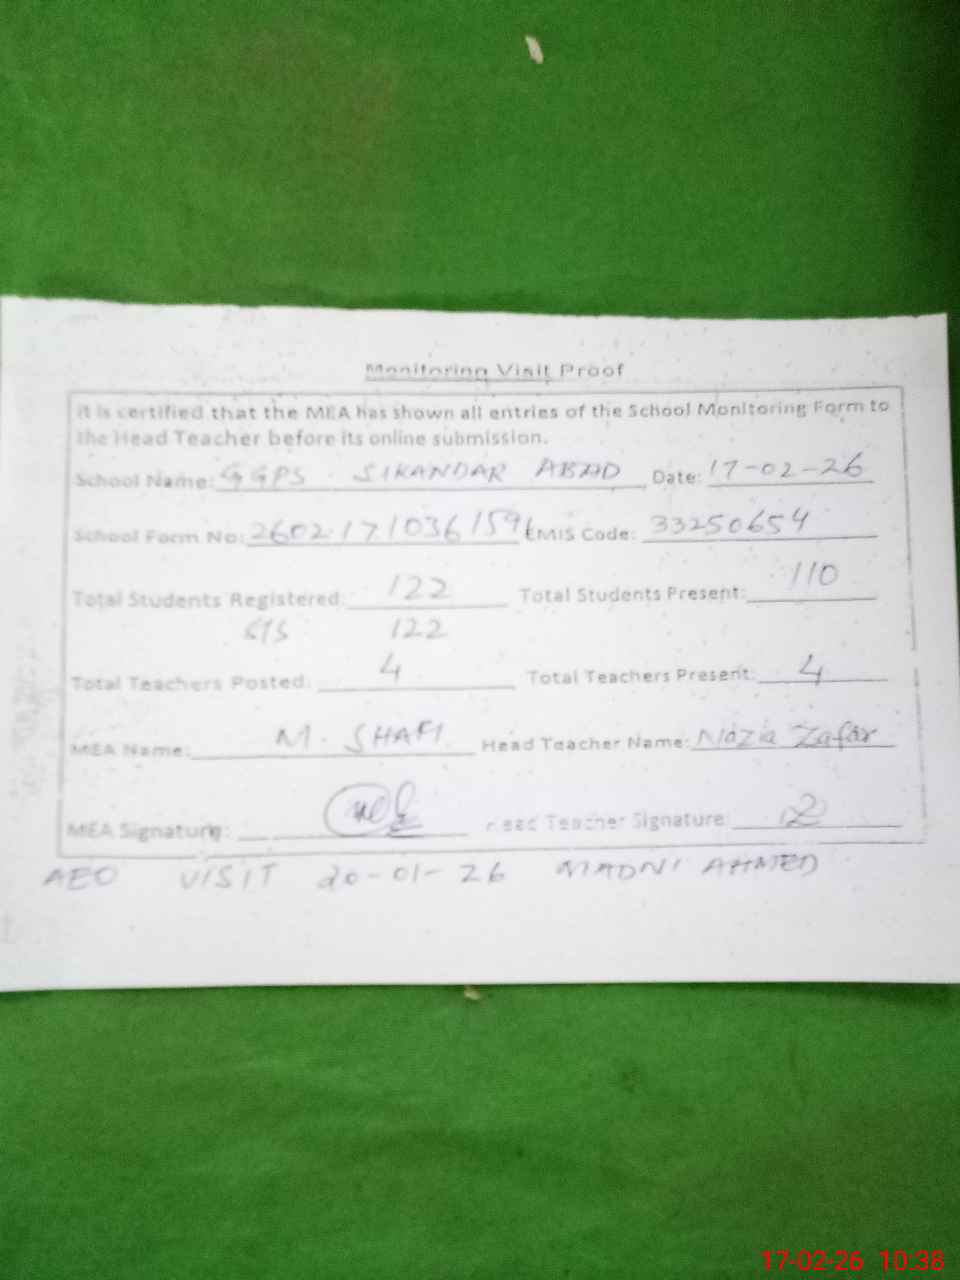 Monitoring Visit Proof
It is certified that the MEA has shown all entries of the School Monitoring Form to
the Head Teacher before its online submission.
School Name: GGPS SIKANDAR ABAD Date: 17-02-26
School Form No: EMIS Code: 33250654
Total Students Registered: 122 Total Students Present: 110
SIS 122
Total Teachers Posted: 4 Total Teachers Present: 4
MEA Name: M. SHAFI Head Teacher Name: Nazia Zafar
MEA Signature: Head Teacher Signature:
AEO VISIT 20-01-26 MADNI AHMED
17-02-26 10:38